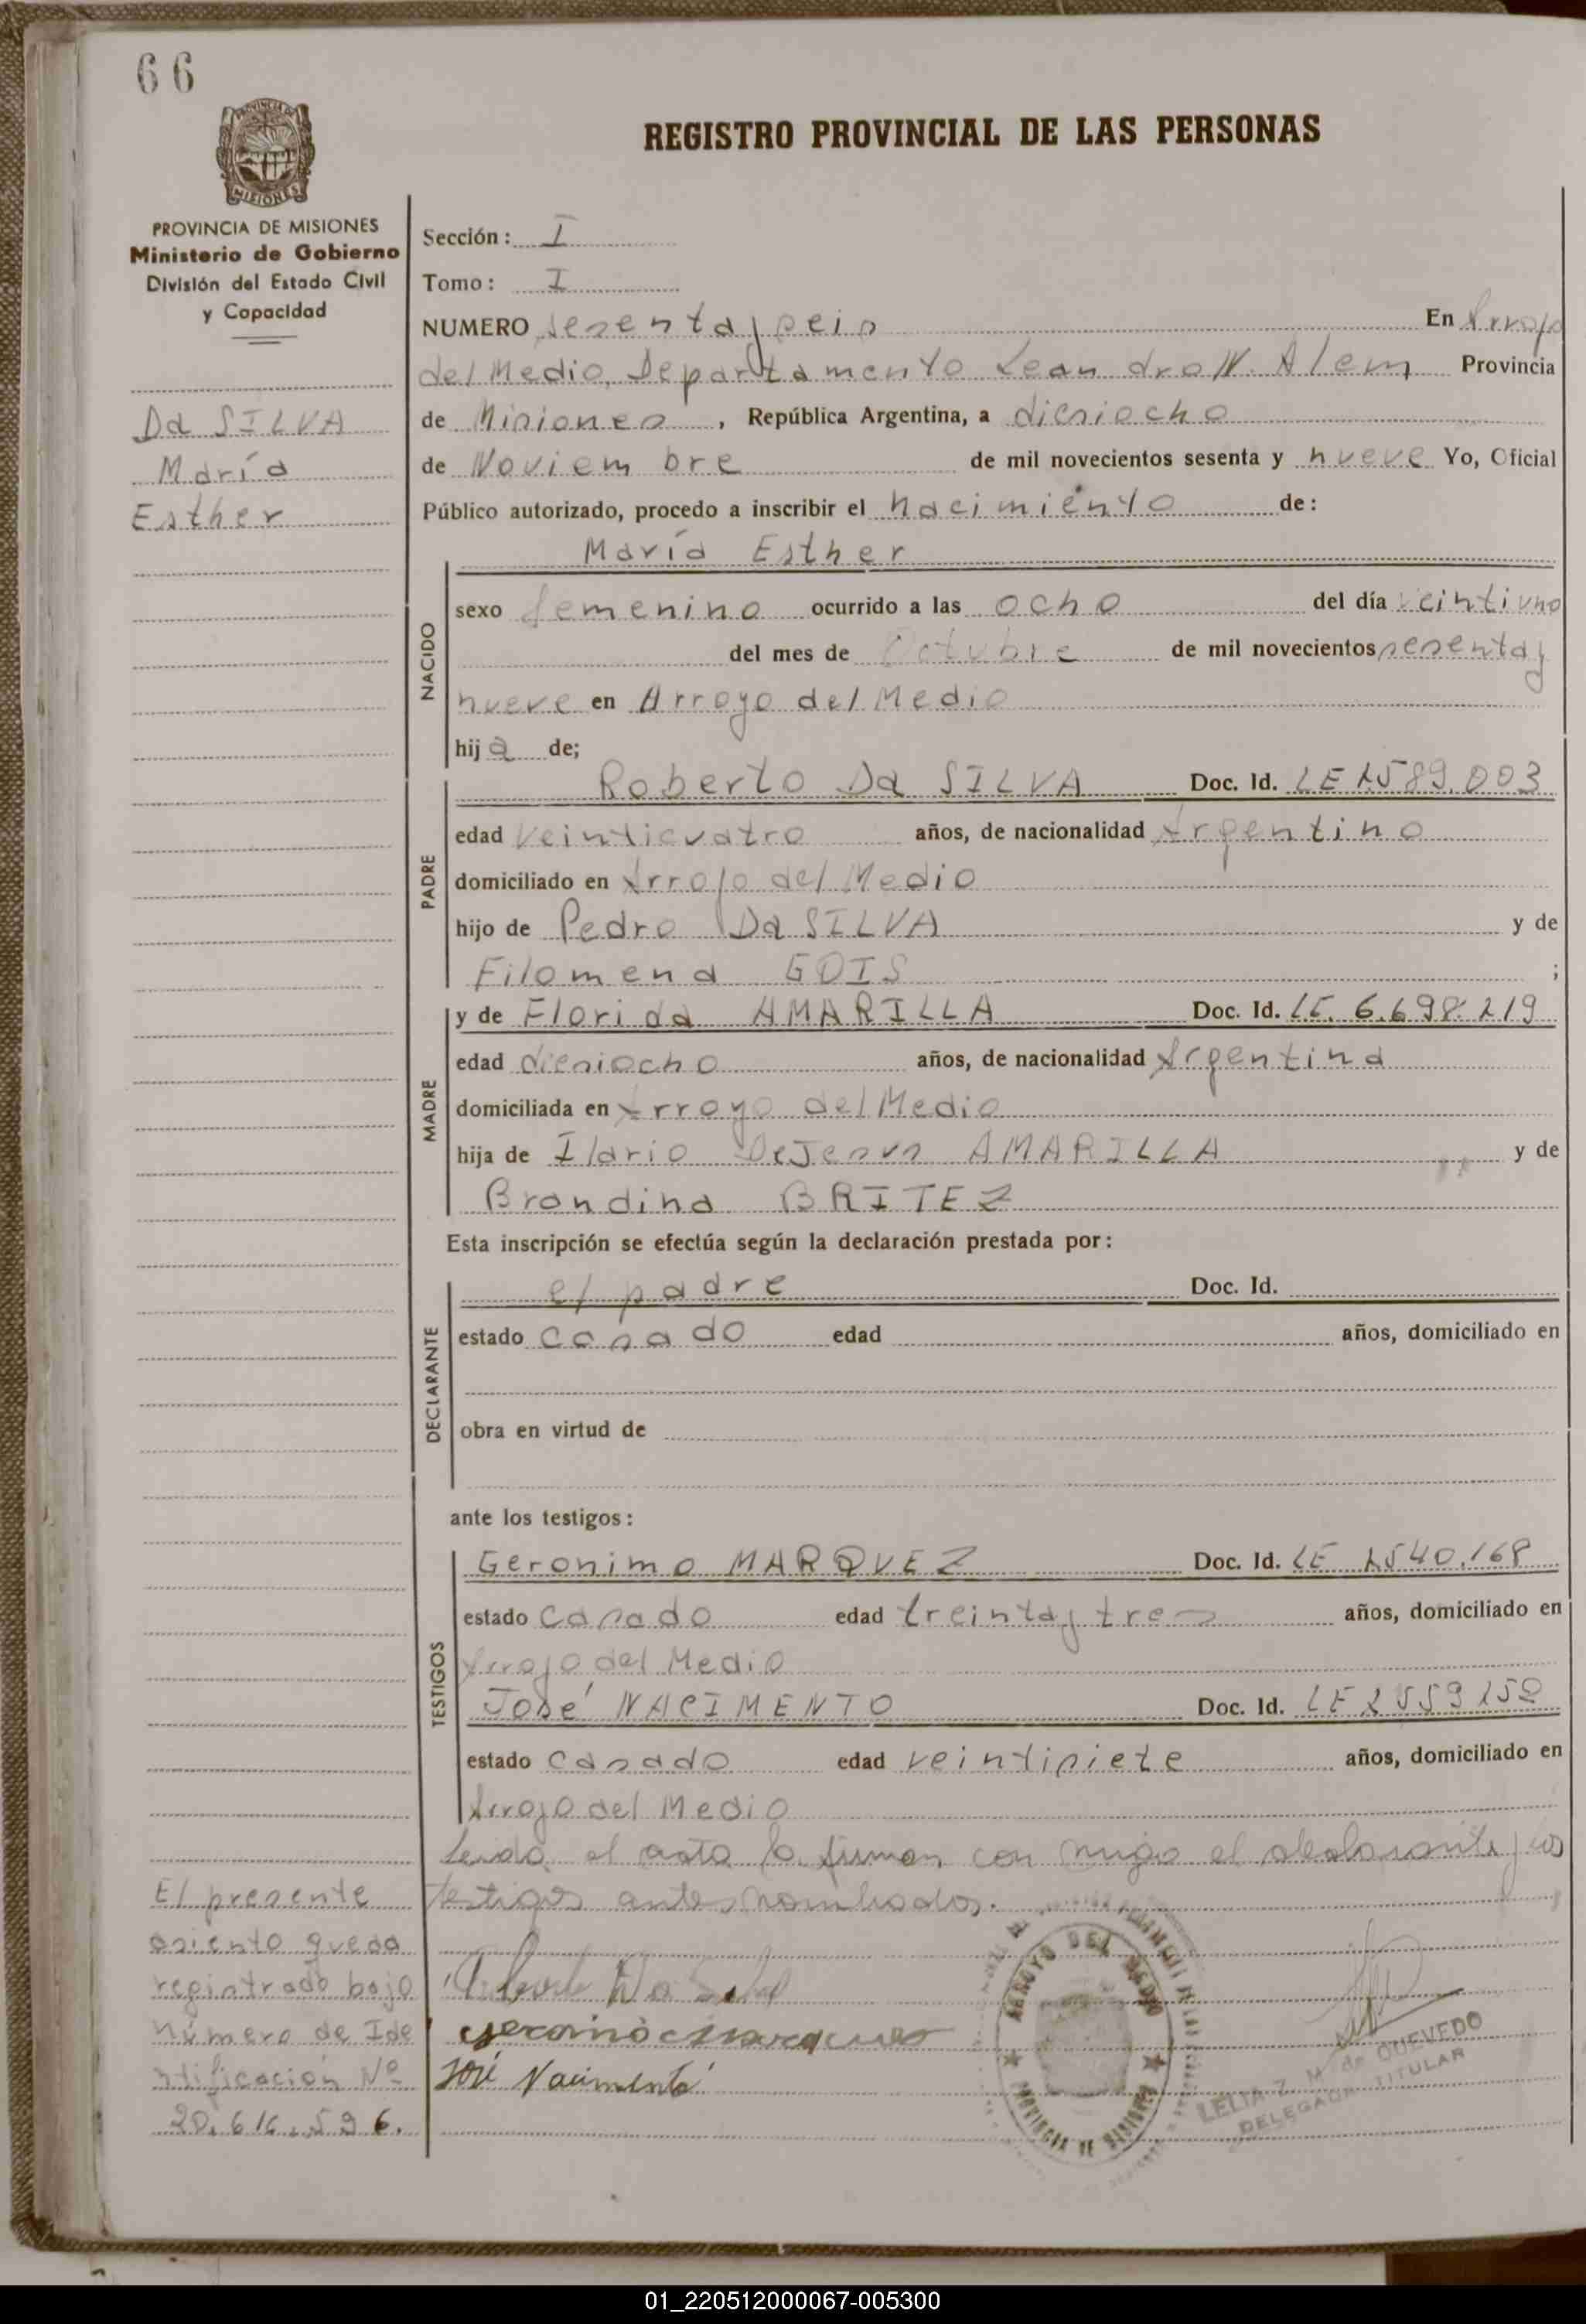 66
PROVINCIA DE
MISIONES
PROVINCIA DE MISIONES
Ministerio de Gobierno
División del Estado Civil
y Capacidad
Da SILVA
María
Esther
REGISTRO PROVINCIAL DE LAS PERSONAS
Sección: I
Tomo: I
NUMERO sesenta y seis En Arroyo
del Medio, Departamento Leandro N. Alem Provincia
de Misiones, República Argentina, a dieciocho
de Noviembre de mil novecientos sesenta y nueve Yo, Oficial
Público autorizado, procedo a inscribir el nacimiento de:
María Esther
NACIDO
sexo femenino ocurrido a las ocho del día veintiuno
del mes de Octubre de mil novecientos sesenta y
nueve en Arroyo del Medio
hija de;
PADRE
Roberto Da SILVA Doc. Id. LE
edad veinticuatro años, de nacionalidad Argentino
domiciliado en Arroyo del Medio
hijo de Pedro Da SILVA y de
Filomena GOIS ;
MADRE
y de Florida AMARILLA Doc. Id. LE. 6.698.219
edad dieciocho años, de nacionalidad Argentina
domiciliada en Arroyo del Medio
hija de Ilario DeJesus AMARILLA y de
Brandina BRITEZ
Esta inscripción se efectúa según la declaración prestada por:
DECLARANTE
el padre Doc. Id.
estado casado edad años, domiciliado en
obra en virtud de
ante los testigos:
TESTIGOS
Geronimo MARQUEZ Doc. Id. LE
estado casado edad treinta y tres años, domiciliado en
Arroyo del Medio
José NACIMENTO Doc. Id. LE
estado casado edad veintisiete años, domiciliado en
Arroyo del Medio
Leida el acta la firman con migo el declarante y los
testigos antes nombrados.
El presente
asiento queda
registrado bajo
Número de Ide
ntificación Nº
20.616.596.
Da Silva
geronimo marques
José Nacimento
ARROYO DEL MEDIO
PROVINCIA DE MISIONES
LELIA Z. M. de QUEVEDO
DELEGADA TITULAR
01_220512000067-005300